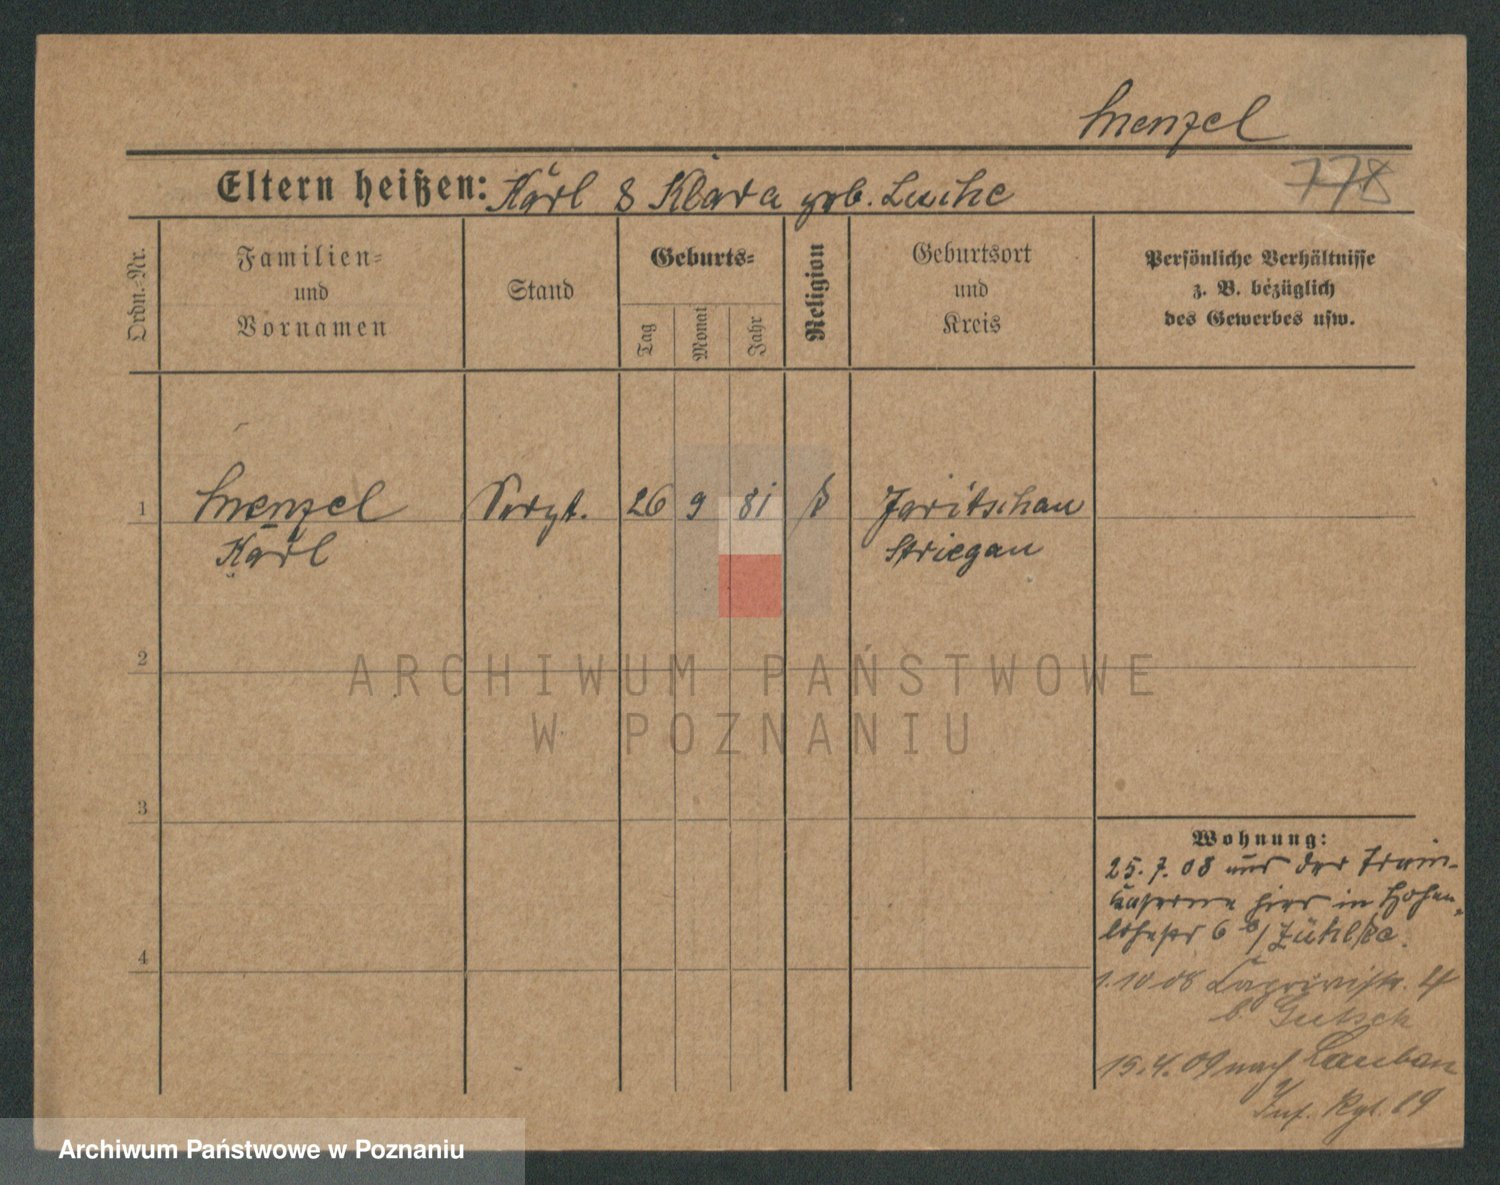 Menzel
Eltern heißen: Karl & Klara geb.
778
Ordn.-Nr.
Familien-
und
Vornamen
Stand
Geburts-
Tag
Monat
Jahr
Religion
Geburtsort
und
Kreis
Persönliche Verhältnisse
z. B. bezüglich
des Gewerbes usw.
1
Menzel
Karl
Sergt.
26
9
81
Jaritschau
Striegau
2
3
4
Wohnung:
25.7.08 aus der Train-
kaserne hier in Hohen-
lohestr 6 b/
1.10 08 Caprivistr.
b. Gutsch
15.4.09 nach Lauban
Inf. Rgt. 19
ARCHIWUM PAŃSTWOWE
W POZNANIU
Archiwum Państwowe w Poznaniu